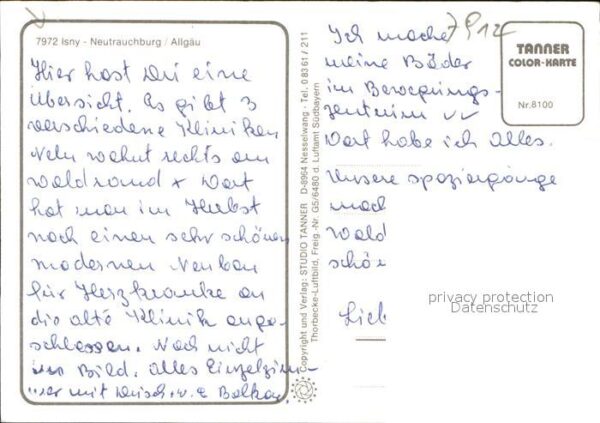 7912
7972 Isny - Neutrauchburg / Allgäu
Hier hast Du eine
Übersicht. Es gibt 3
verschiedene Kliniken
wohnt rechts am
Waldrand x Dort
hat man im Herbst
noch einen sehr schönen
modernen Neubau
für Herzkranke an
die alte Klinik ange-
schlossen. Noch nicht
im Bild. Alles Einzelzim-
mer mit Dusch. u. Balkon.
Copyright und Verlag: STUDIO TANNER D-8964 Nesselwang - Tel. 08361 / 211
Thorbecke-Luftbild, Freig.-Nr. G5/6480 d. Luftamt Südbayern
Ich mache
meine Bäder
im Bewegungs-
zentrum
Dort habe ich alles.
Unsere Spaziergänge
mach
Wald
schön
Lieb
TANNER
COLOR-KARTE
Nr. 8100
privacy protection
Datenschutz